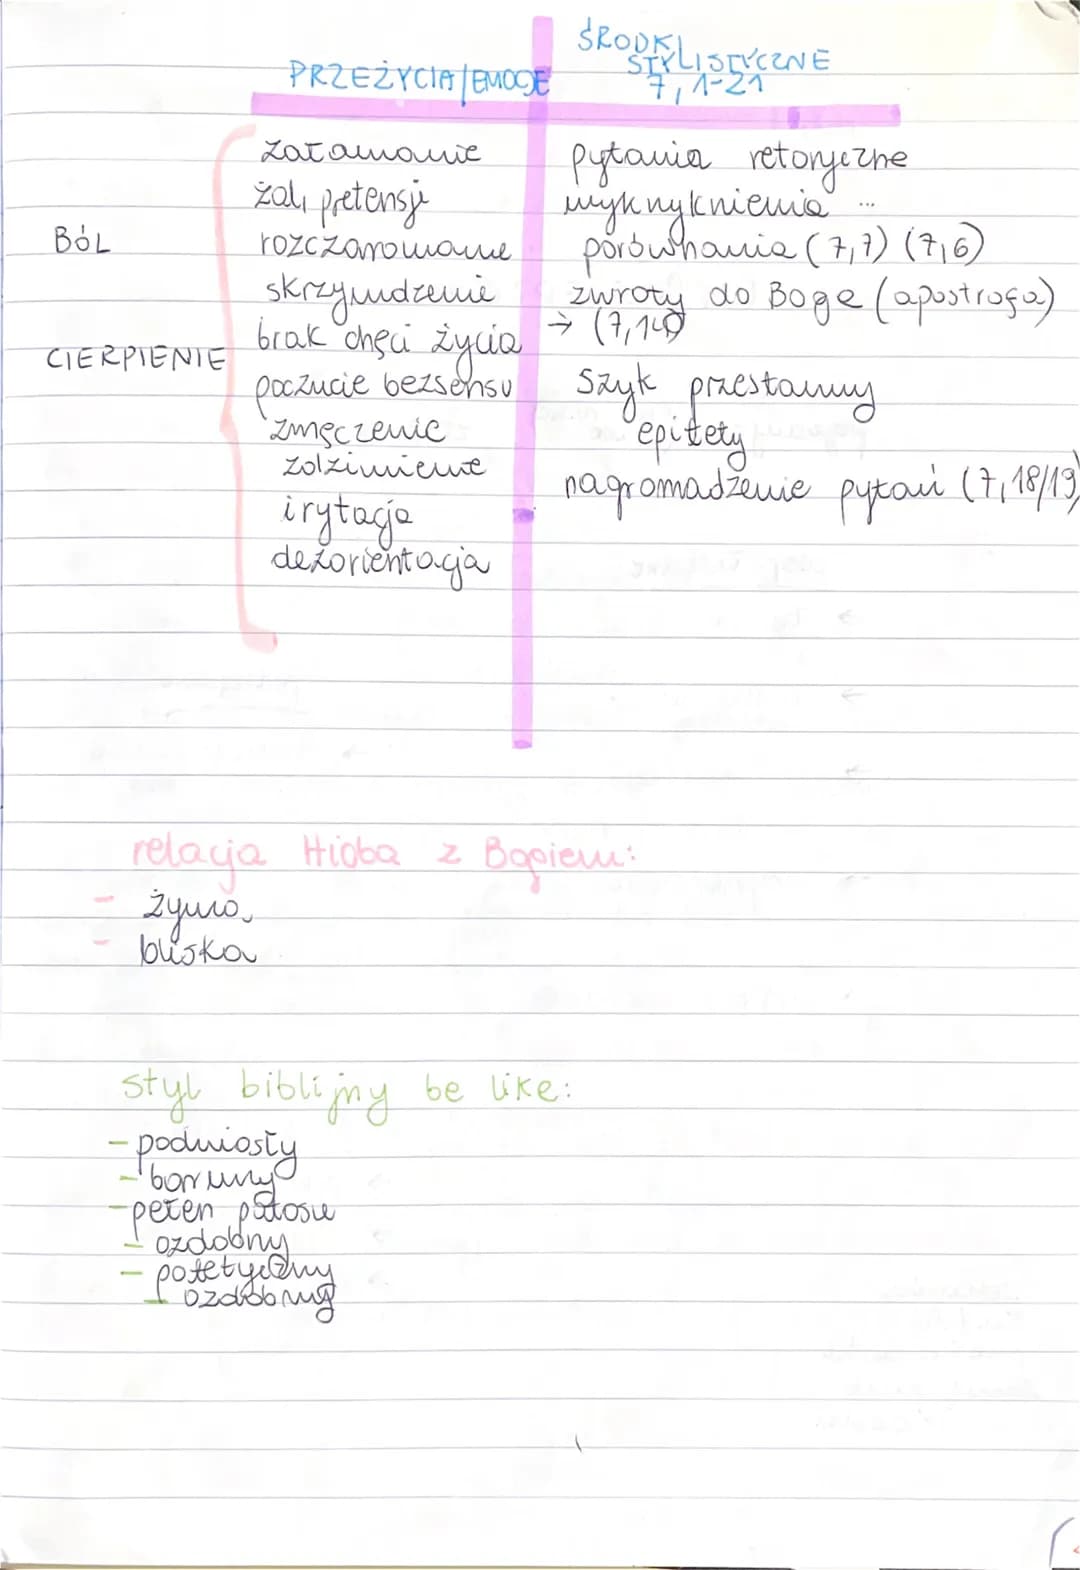 ŚRODKI
STYLISTYCZNE
PRZEŻYCIA/EMOCJE 7, 1-21
załamanie pytania retoryczne
żal, pretensje wyknyknienia ...
BÓL rozczarowanie porównania (7,7) (7,6)
skrzywdzenie zwroty do Boga (apostrofa)
CIERPIENIE brak chęci życia → (7,14)
poczucie bezsensu szyk przestawny
zmęczenie epitety
zdziwienie nagromadzenie pytań (7,18/19)
irytacja
dezorientacja
relacja Hioba z Bogiem:
- żywa,
- bliska
styl biblijny be like:
- podniosły
- barwny
- pełen patosu
- ozdobny
- patetyczny
- ozdobny